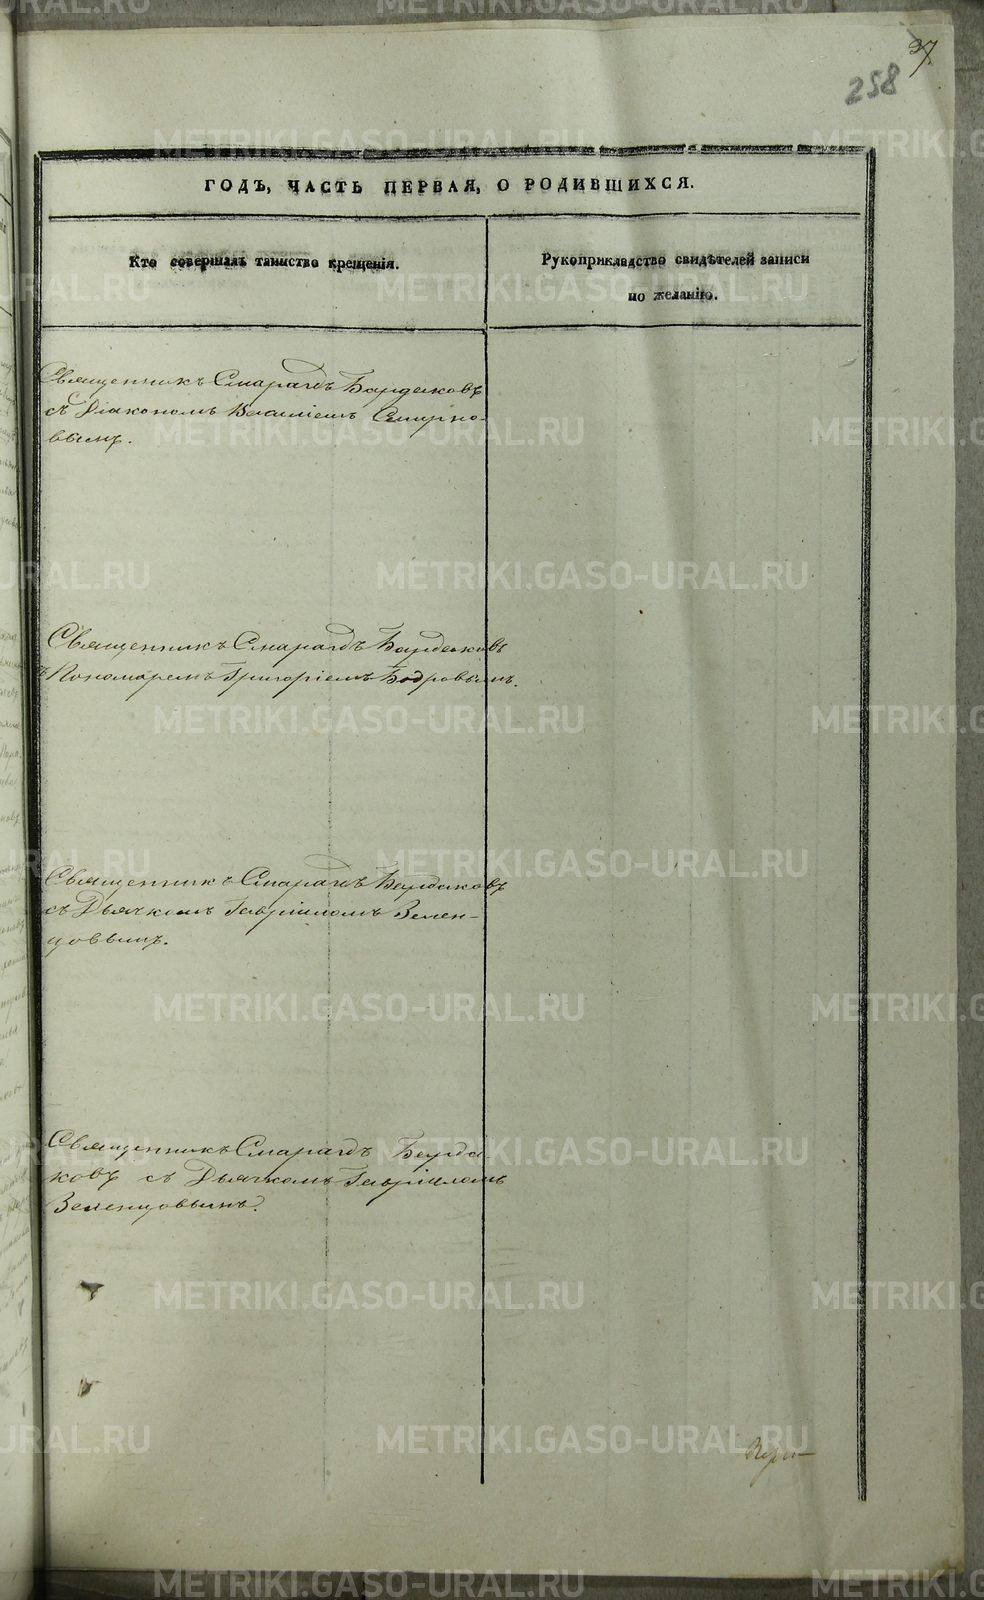 37
258
ГОДЪ, ЧАСТЬ ПЕРВАЯ, О РОДИВШИХСЯ.
Кто совершалъ таинство крещенія.
Рукоприкладство свидѣтелей записи
по желанію.
Священникъ Смарагдъ Бардаковъ
съ Діакономъ Василіемъ Смирно-
вымъ.
Священникъ Смарагдъ Бардаковъ
съ Пономаремъ Григоріемъ Бодровымъ.
Священникъ Смарагдъ Бардаковъ
съ Дьячкомъ Гавріиломъ Зелен-
цовымъ.
Священникъ Смарагдъ Барда
ковъ съ Дьячкомъ Гавріиломъ
Зеленцовымъ.
METRIKI.GASO-URAL.RU